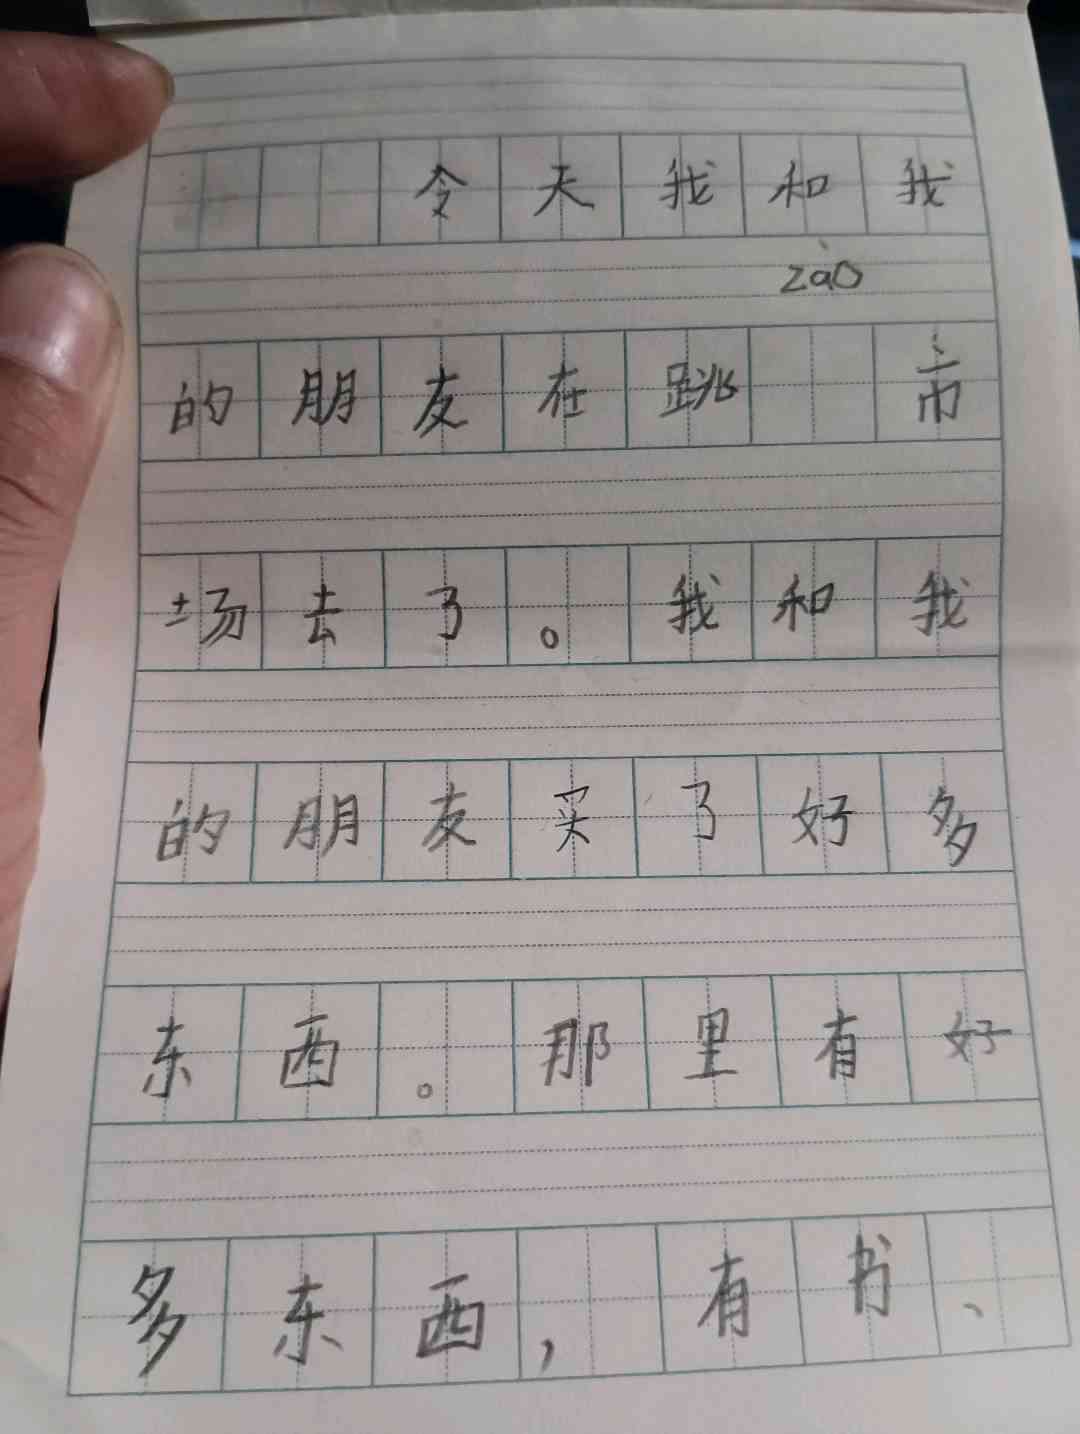 令天我和我
zào
的朋友在跳 市
场去了。我和我
的朋友买了好多
东西。那里有好
多东西，有书、